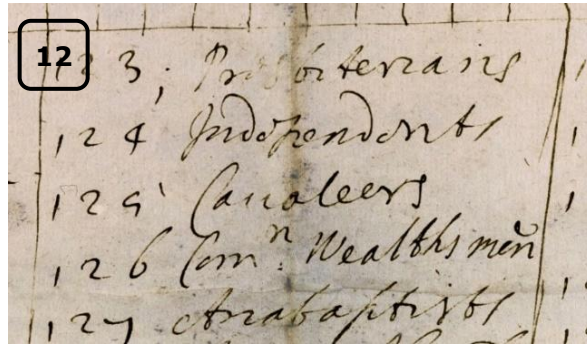 12
123; Presbiterians
124 Independents
125 Cavaleers
126 Com:n Wealthsmen
127 Anabaptists